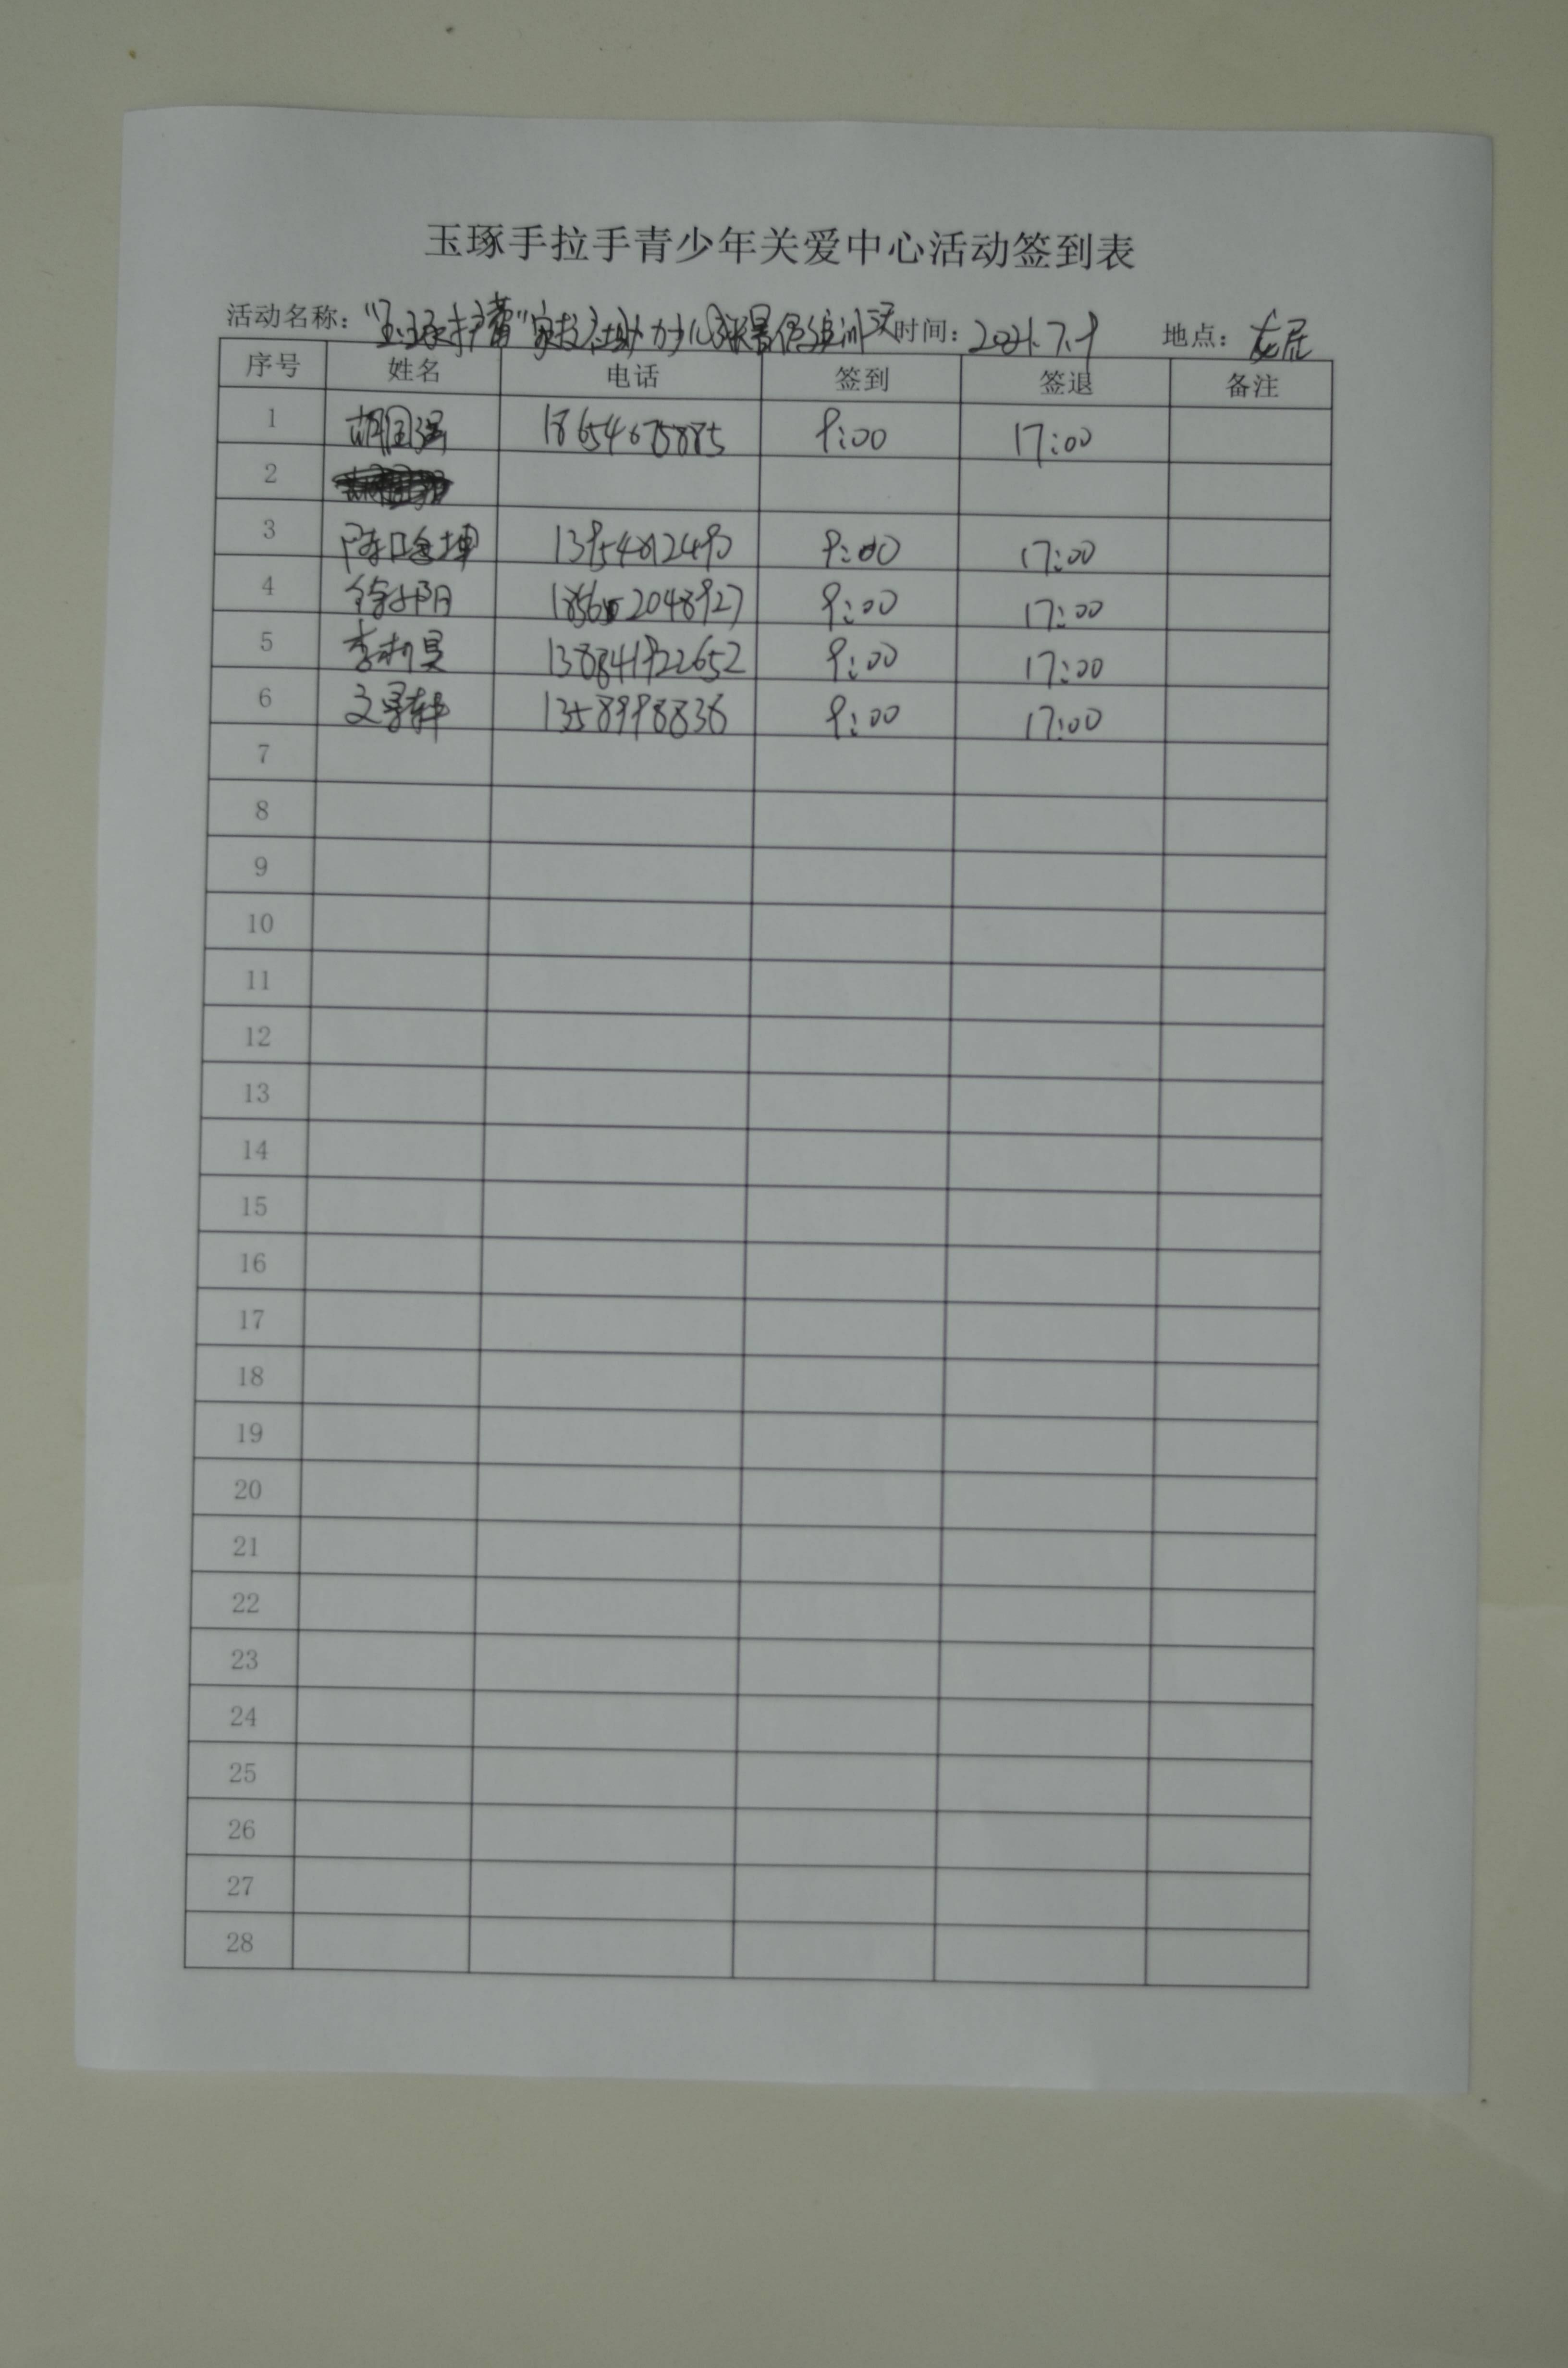 玉琢手拉手青少年关爱中心活动签到表
活动名称： “玉琢护蕾”家校社助力 暑假 时间： 2021.7.9 地点： 龙居
序号 姓名 电话 签到 签退 备注
1 胡国强 18654675885 9:00 17:00
2
3 陈 坤 13954812490 9:00 17:00
4 徐 阳 9:00 17:00
5 李 昊 9:00 17:00
6 文 轩 1358998836 9:00 17:00
7
8
9
10
11
12
13
14
15
16
17
18
19
20
21
22
23
24
25
26
27
28